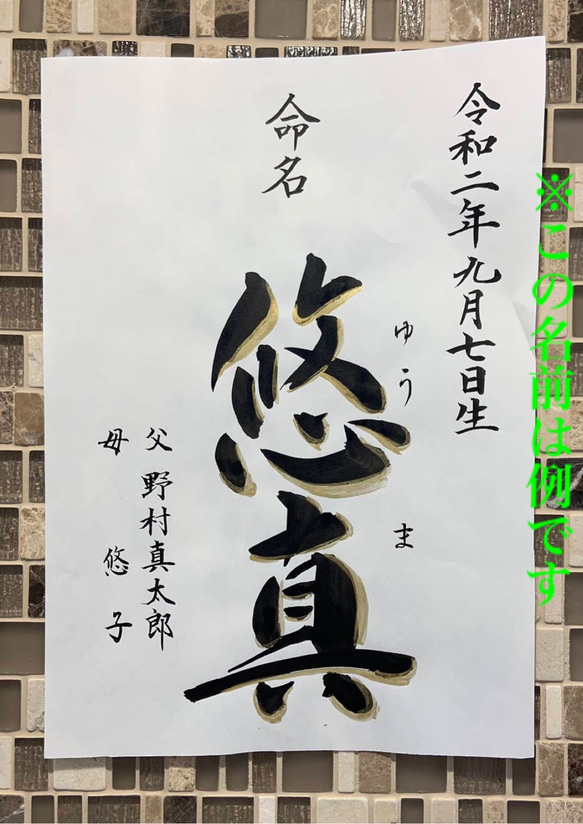 ※この名前は例です
令和二年九月七日生
命名
悠真
ゆうま
父 野村真太郎
母 悠子